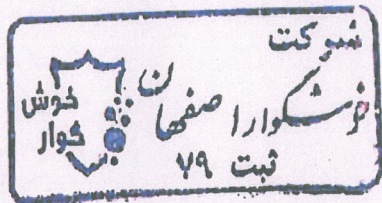 شرکت
خوشگوار اصفهان
ثبت ۷۹
خوش
گوار